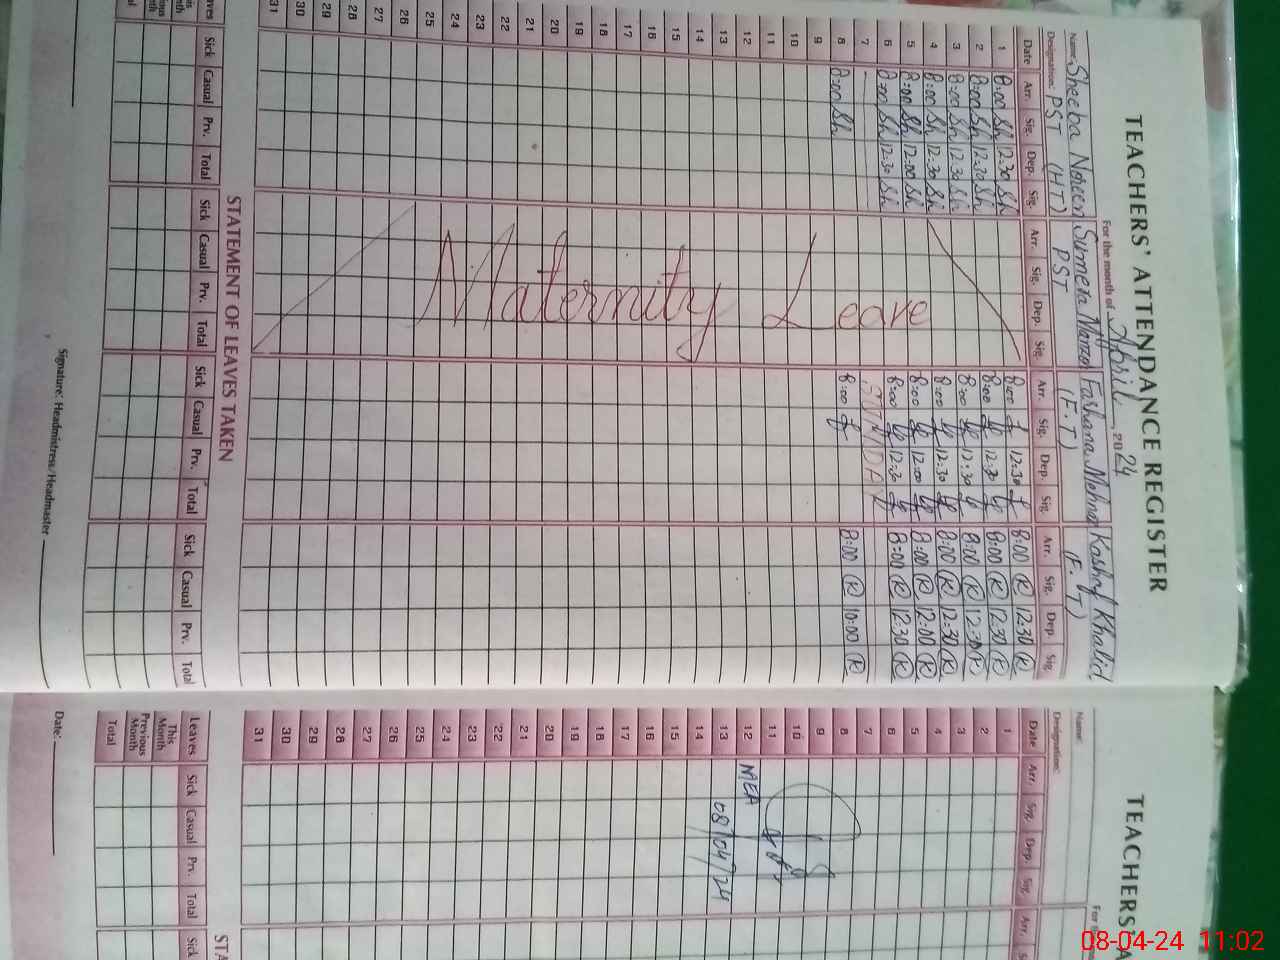 TEACHERS' ATTENDANCE REGISTER
For the month of April, 2024
Name: Sheeba Noreen Sumera Manzor Farhana Mehnaz Kashf Khalid
Designation: PST (HT) PST (F.T) (F.T)
Date Arr. Sig. Dep. Sig. Arr. Sig. Dep. Sig. Arr. Sig. Dep. Sig. Arr. Sig. Dep. Sig.
1 8:00 Sh 12:30 Sh 8:00 12:30 8:00 K 12:30 K
2 8:00 Sh 12:30 Sh 8:00 12:30 8:00 K 12:30 K
3 8:00 Sh 12:30 Sh 8:00 12:30 8:00 K 12:30 K
4 8:00 Sh 12:30 Sh 8:00 12:30 8:00 K 12:30 K
5 8:00 Sh 12:00 Sh 8:00 12:00 8:00 K 12:00 K
6 8:00 Sh 12:30 Sh 8:00 12:30 8:00 K 12:30 K
7 SUNDAY
8 8:00 Sh 8:00 8:00 K 10:00 K
9
10
11
12
13
14
15
16
17
18
19
20
21
22
23
24
25
26
27
28
29
30
31
Maternity Leave
STATEMENT OF LEAVES TAKEN
Sick Casual Prv. Total Sick Casual Prv. Total Sick Casual Prv. Total Sick Casual Prv. Total
Signature: Headmistress/Headmaster
TEACHERS' A
For
Name:
Designation:
Date Arr. Sig. Dep. Sig. Arr.
1
2
3
4
5
6
7
8
9
10
11
12
13
14
15
16
17
18
19
20
21
22
23
24
25
26
27
28
29
30
31
MEA
08/04/24
STA
Leaves Sick Casual Prv. Total Sick
This Month
Previous Month
Total
Date:
08-04-24 11:02